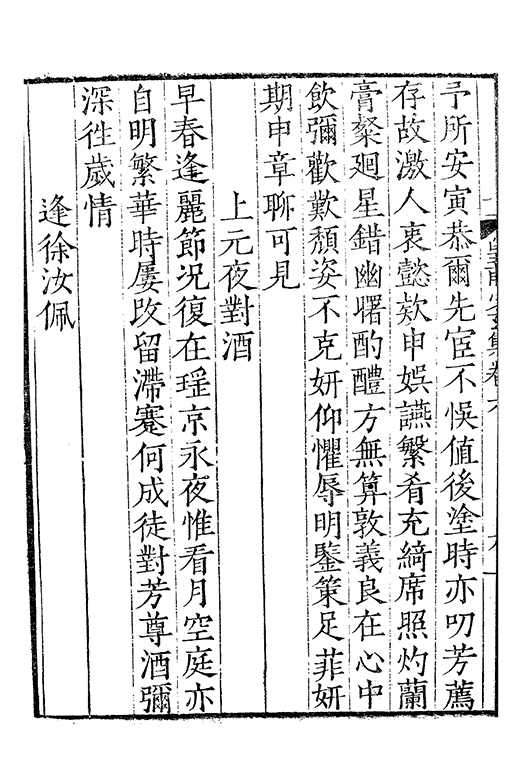 予所安寅恭爾先宦不悞值後塗時亦叨芳薦
存故激人衷懿欵申娛讌繁肴充綺席照灼蘭
膏粲廻星錯幽曙酌醴方無算敦義良在心中
飲彌歡歎頹姿不克妍仰懼辱明鑒策足菲妍
期申章聊可見
上元夜對酒
早春逢麗節況復在瑶京永夜惟看月空庭亦
自明繁華時屢改留滯蹇何成徒對芳尊酒彌
深徃歲情
逢徐汝佩